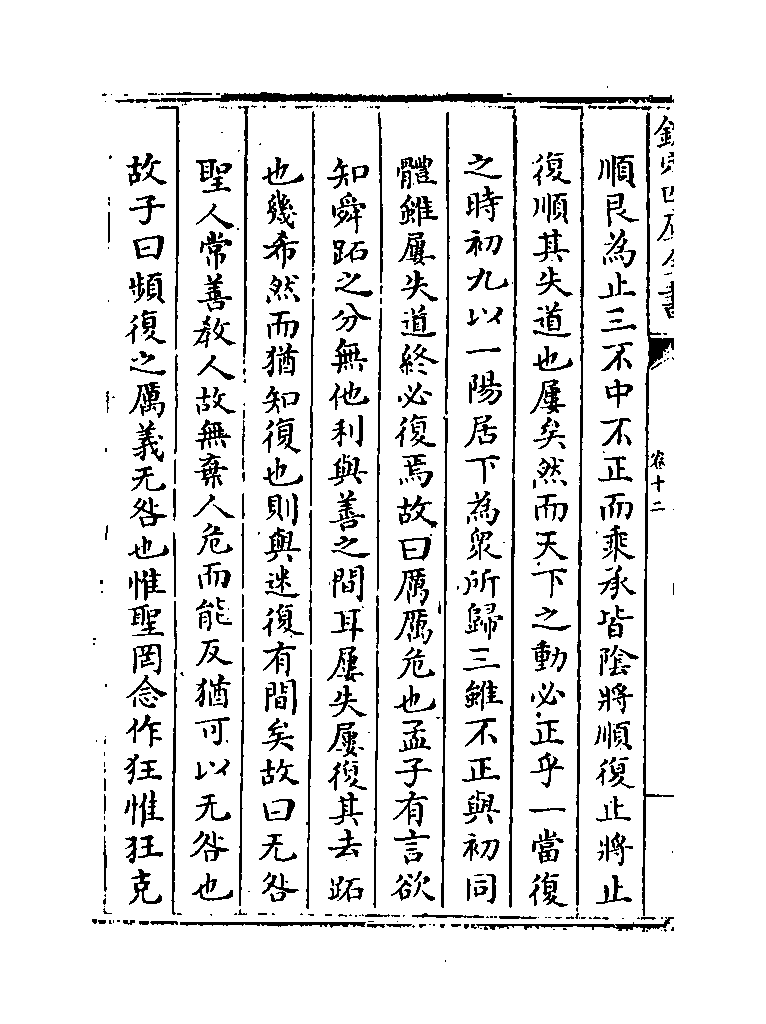 欽定四庫全書
卷十二
順艮為止三不中不正而乘承皆陰將順復止將止
復順其失道也屢矣然而天下之動必正乎一當復
之時初九以一陽居下為衆所歸三雖不正與初同
體雖屢失道終必復焉故曰厲厲危也孟子有言欲
知舜跖之分無他利與善之間耳屢失屢復其去跖
也幾希然而猶知復也則與迷復有間矣故曰无咎
聖人常善教人故無棄人危而能反猶可以无咎也
故子曰頻復之厲義无咎也惟聖罔念作狂惟狂克